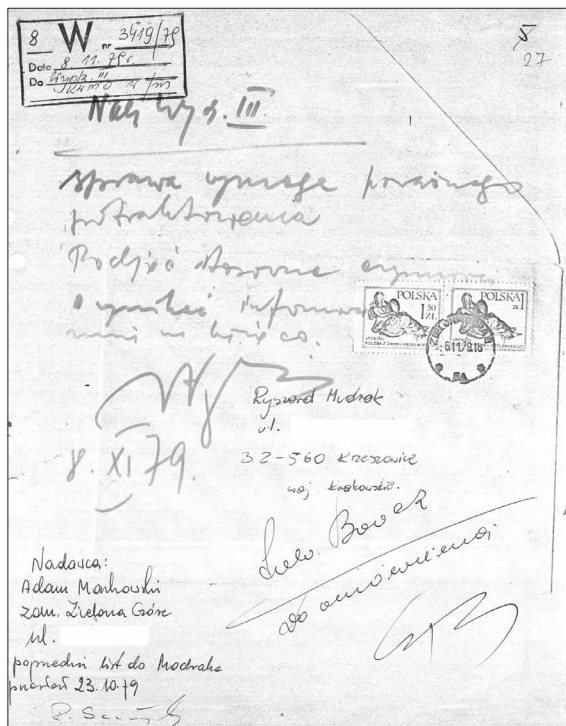 8 W nr 3419/79
Data 8.11.79r.
Do Wydz. III
KWMO w/m
5
27
Nacz. Wydz. III
sprawa wymaga poważnego
potraktowania
Podjąć stosowne czynności
O wyniku
mnie na bieżąco.
8.XI 79.
POLSKA
1 50 ZŁ
POLSKA
1 ZŁ
6.11.79.18
Ryszard Mudrak
ul.
32-560 Krzeszowice
woj Krakowskie.
Do omówienia
Nadawca:
Adam Markowski
zam. Zielona Góra
ul.
poprzedni list do Modraka
przesłał 23.10.79